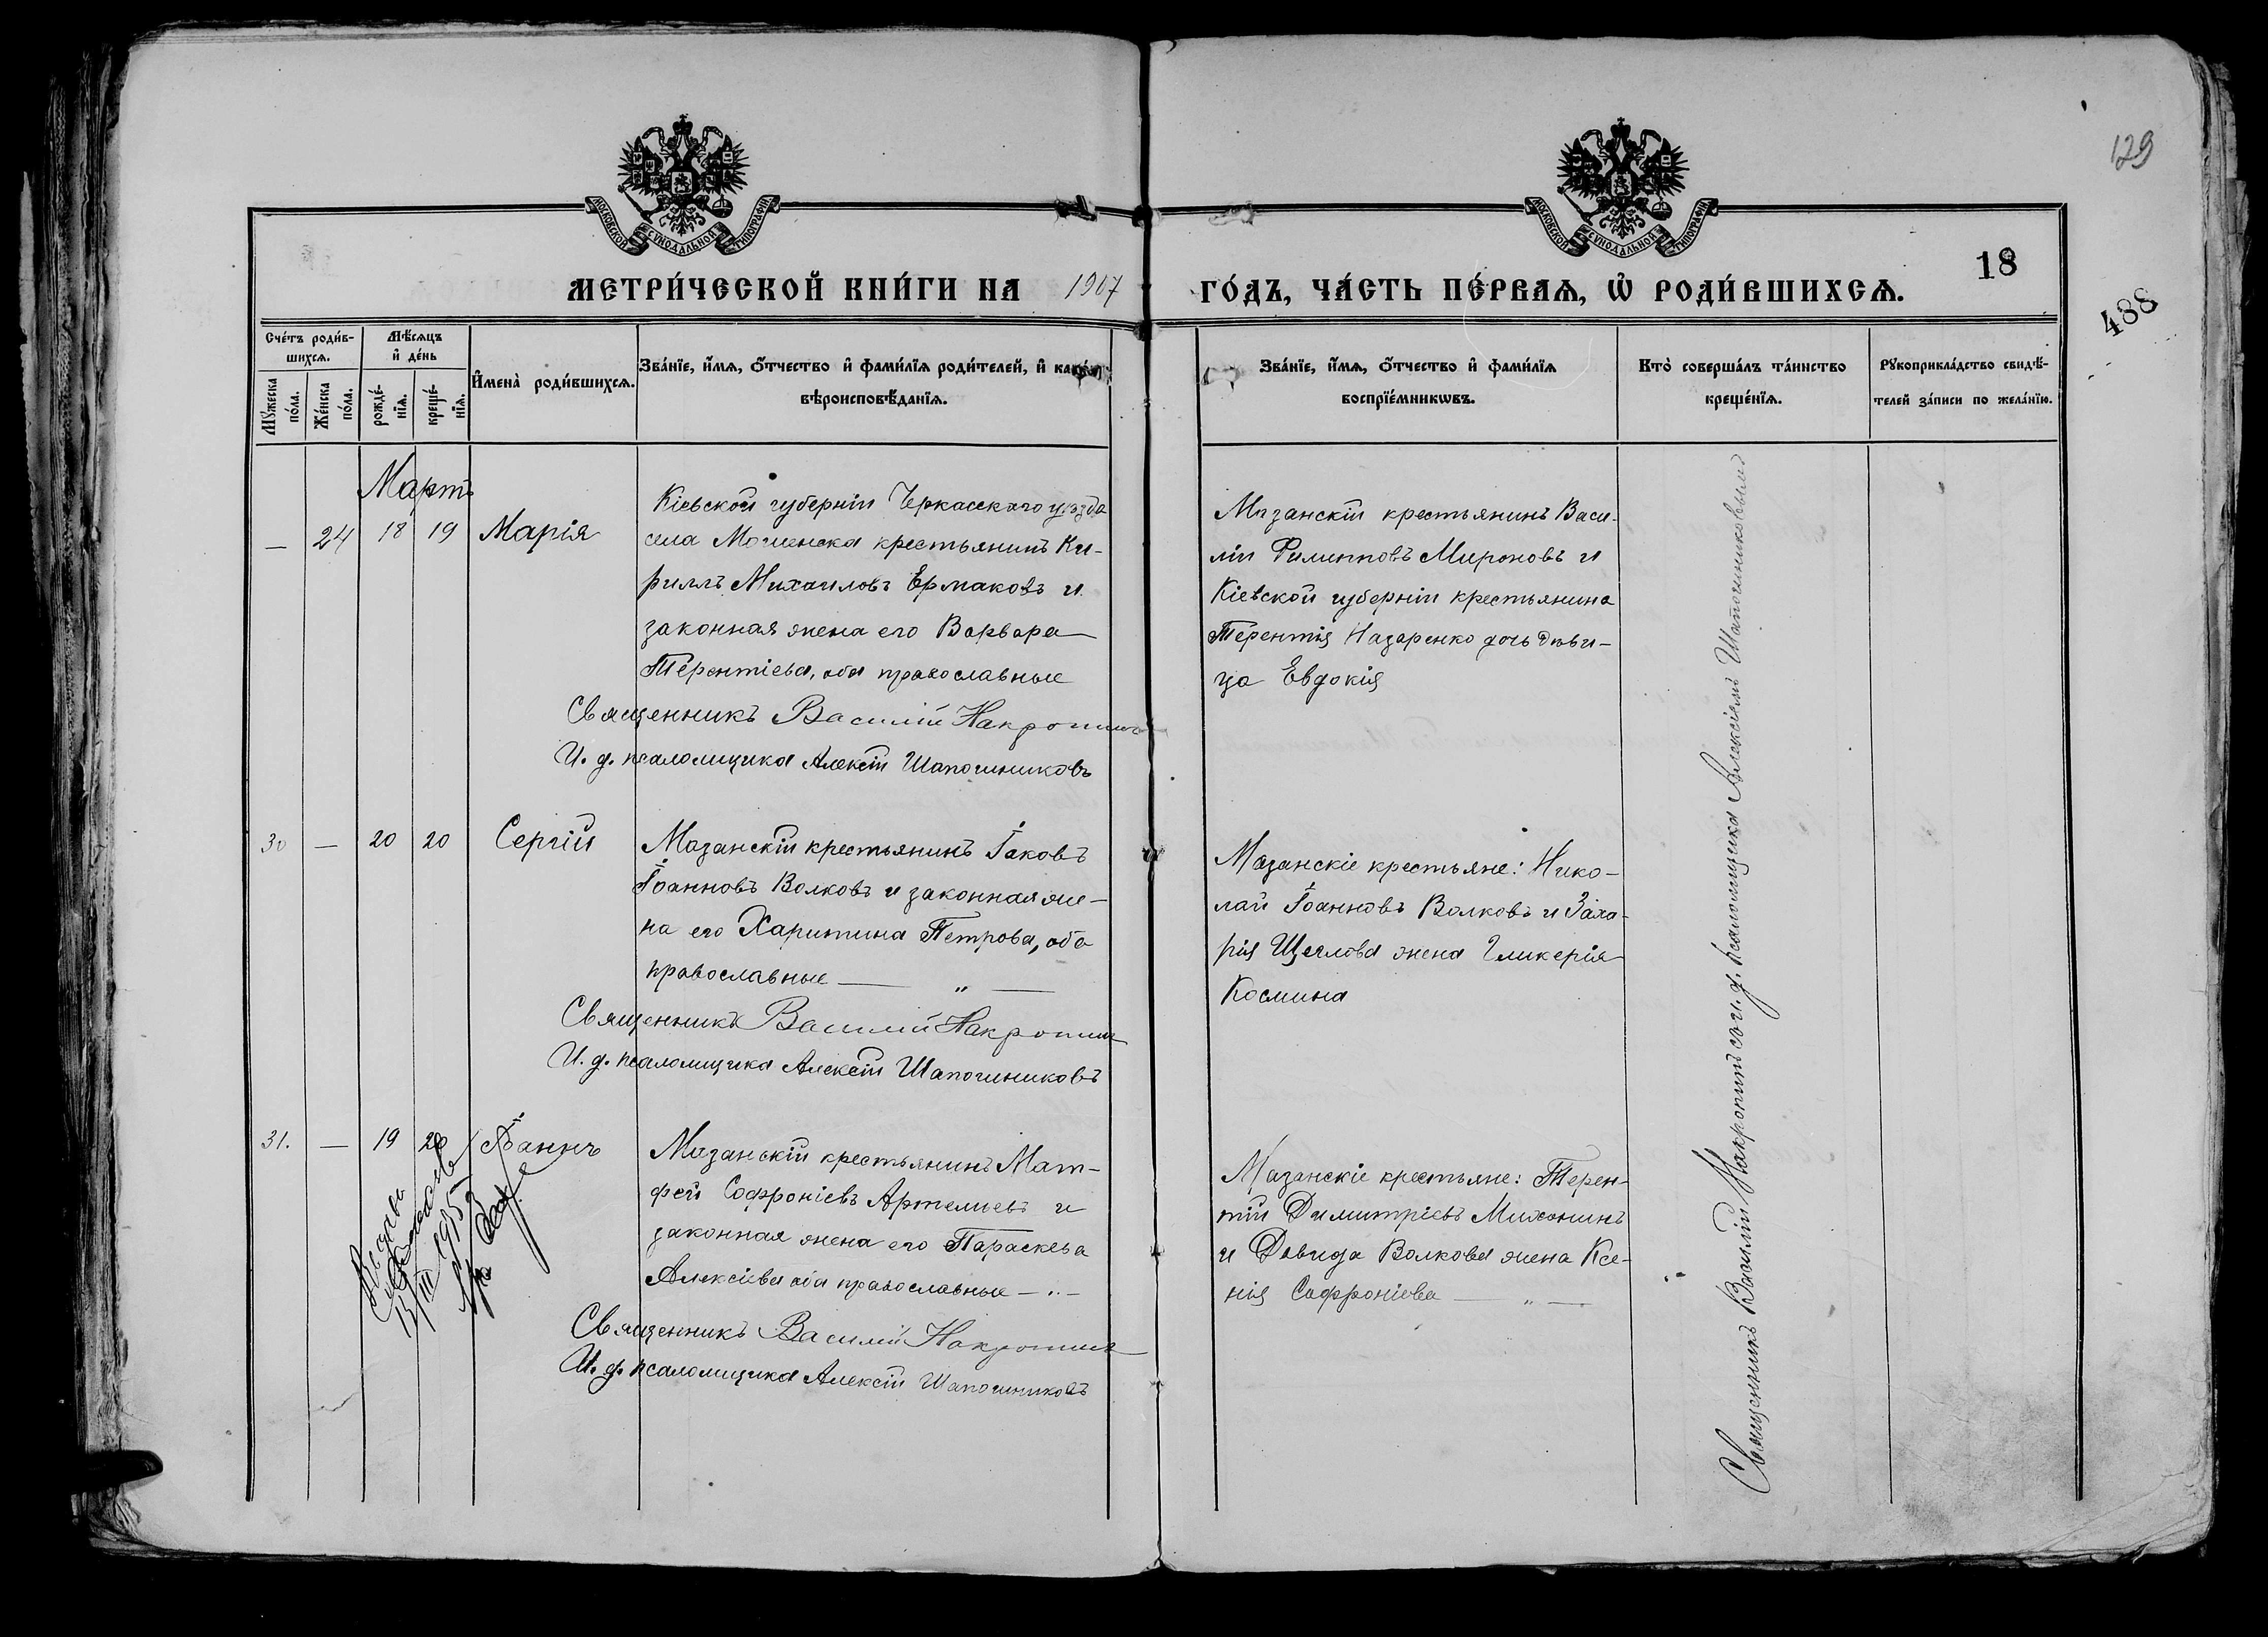 129
МОСКОВСКОЙ СУНОДАЛЬНОЙ ТИПОГРАФІИ
МОСКОВСКОЙ СУНОДАЛЬНОЙ ТИПОГРАФІИ
МЕТРИ́ЧЕСКОЙ КНИ́ГИ НА 1907 ГО́ДЪ, ЧА́СТЬ ПЕ́РВАѦ, Ѡ҆ РОДИ́ВШИХСѦ.
18
488
Сче́тъ роди́в-
шихсѧ.
Мꙋ́жеска
по́ла.
Же́нска
по́ла.
Мѣ́сѧцъ
и҆ де́нь
рожде́-
нїѧ.
креще́-
нїѧ.
И҆мена̀ роди́вшихсѧ.
Зва́нїе, и҆́мѧ, ѻ҆́тчество и҆ фами́лїѧ роди́телей, и҆
вѣроисповѣ́данїѧ.
Зва́нїе, и҆́мѧ, ѻ҆́тчество и҆ фами́лїѧ
воспрїе́мникѡвъ.
Кто̀ соверша́лъ та́инство
креще́нїѧ.
Рꙋкоприкла́дство свидѣ́-
телей за́писи по жела́нїю.
Мартъ
— 24 18 19 Марія
Кіевской губерніи Черкасского уѣзда
села Мошенска крестьянинъ Ки-
риллъ Михаиловъ Ермаковъ и
законная жена его Варвара
Терентіева, оба православные
Священникъ Василій Накропинъ
И. д. псаломщика Алексій Шапошниковъ
Мазанскій крестьянинъ Васи-
лій Филипповъ Мироновъ и
Кіевской губерніи крестьянина
Терентія Назаренко дочь дѣви-
ца Евдокія
30 — 20 20 Сергій
Мазанскій крестьянинъ Іаковъ
Іоанновъ Волковъ и законная же-
на его Харитина Петрова, оба
православные — „ —
Священникъ Василій Накропинъ
И. д. псаломщика Алексій Шапошниковъ
Мазанскіе крестьяне: Нико-
лай Іоанновъ Волковъ и Заха-
рія Щеглова жена Гликерія
Космина
31. — 19 20 Іоаннъ
13/III 1935
Мазанскій крестьянинъ Мат-
фей Софроніевъ Артемьевъ и
законная жена его Параскева
Алексіева оба православные — „ —
Священникъ Василій Накропинъ
И. д. псаломщика Алексій Шапошниковъ
Мазанскіе крестьяне: Терен-
тій Димитріевъ Михонинъ
и Давида Волкова жена Ксе-
нія Софроніева — „ —
Священникъ Василій Накропинъ съ и. д. псаломщика Алексіемъ Шапошниковымъ